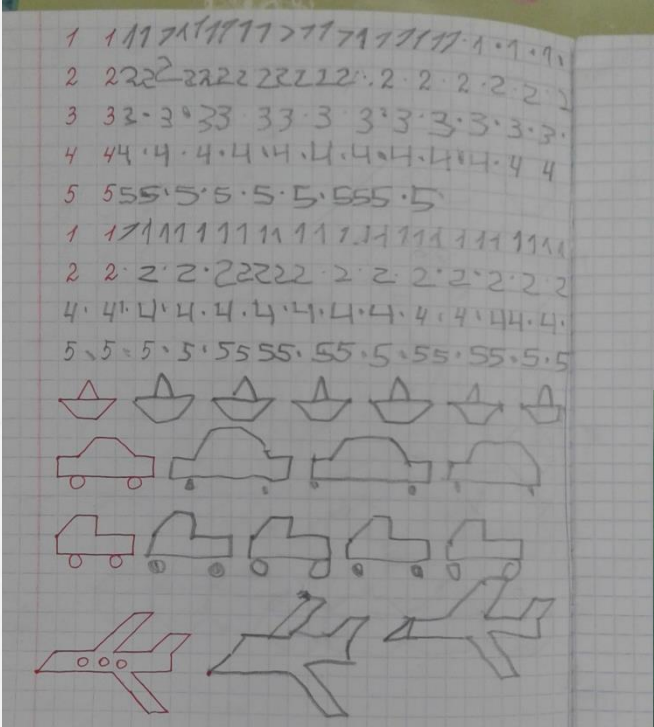 1 1 1 1 1 1 1 1 1 1 1 1 1 1 1 1 1 1 1 1 1 1 · 1 · 1 · 1 ·
2 2 2 2 2 2 2 2 2 2 2 2 2 2 2 · 2 · 2 · 2 · 2 · 2 · 2
3 3 3 · 3 · 3 3 3 3 · 3 3 · 3 · 3 · 3 · 3 · 3 ·
4 4 4 · 4 · 4 · 4 · 4 · 4 · 4 · 4 · 4 · 4 · 4 4
5 5 5 5 · 5 · 5 · 5 · 5 · 5 5 5 · 5
1 1 1 1 1 1 1 1 1 1 1 1 1 1 1 1 1 1 1 1 1 1 1 1
2 2 · 2 · 2 · 2 2 2 2 2 · 2 · 2 · 2 · 2 · 2 · 2 · 2
4 · 4 · 4 · 4 · 4 · 4 · 4 · 4 · 4 · 4 · 4 · 4 4 · 4 ·
5 · 5 · 5 · 5 · 5 5 5 5 · 5 5 · 5 · 5 5 · 5 5 · 5 · 5